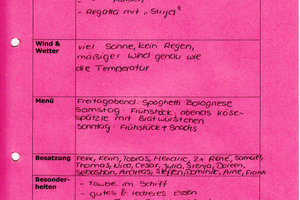 - Regatta mit "Strija"
Wind & Wetter
viel Sonne, kein Regen,
mäßiger Wind genau wie
die Temperatur
Menü
Freitagabend: Spaghetti Bolognese
Samstag: Frühstück, abends Käse-
spätzle mit Bratwürstchen
Sonntag: Frühstück + Snacks
Besatzung
Felix, Kevin, Tobias, Hendric, 2x René, Samuel,
Thomas, Wico, Cesar, Julia, Svenja, Doreen,
Sebastian, Andreas, Steffen, Dominik, Arne, Frank
Besonder-
heiten
- Taube im Schiff
- gutes & leckeres Essen